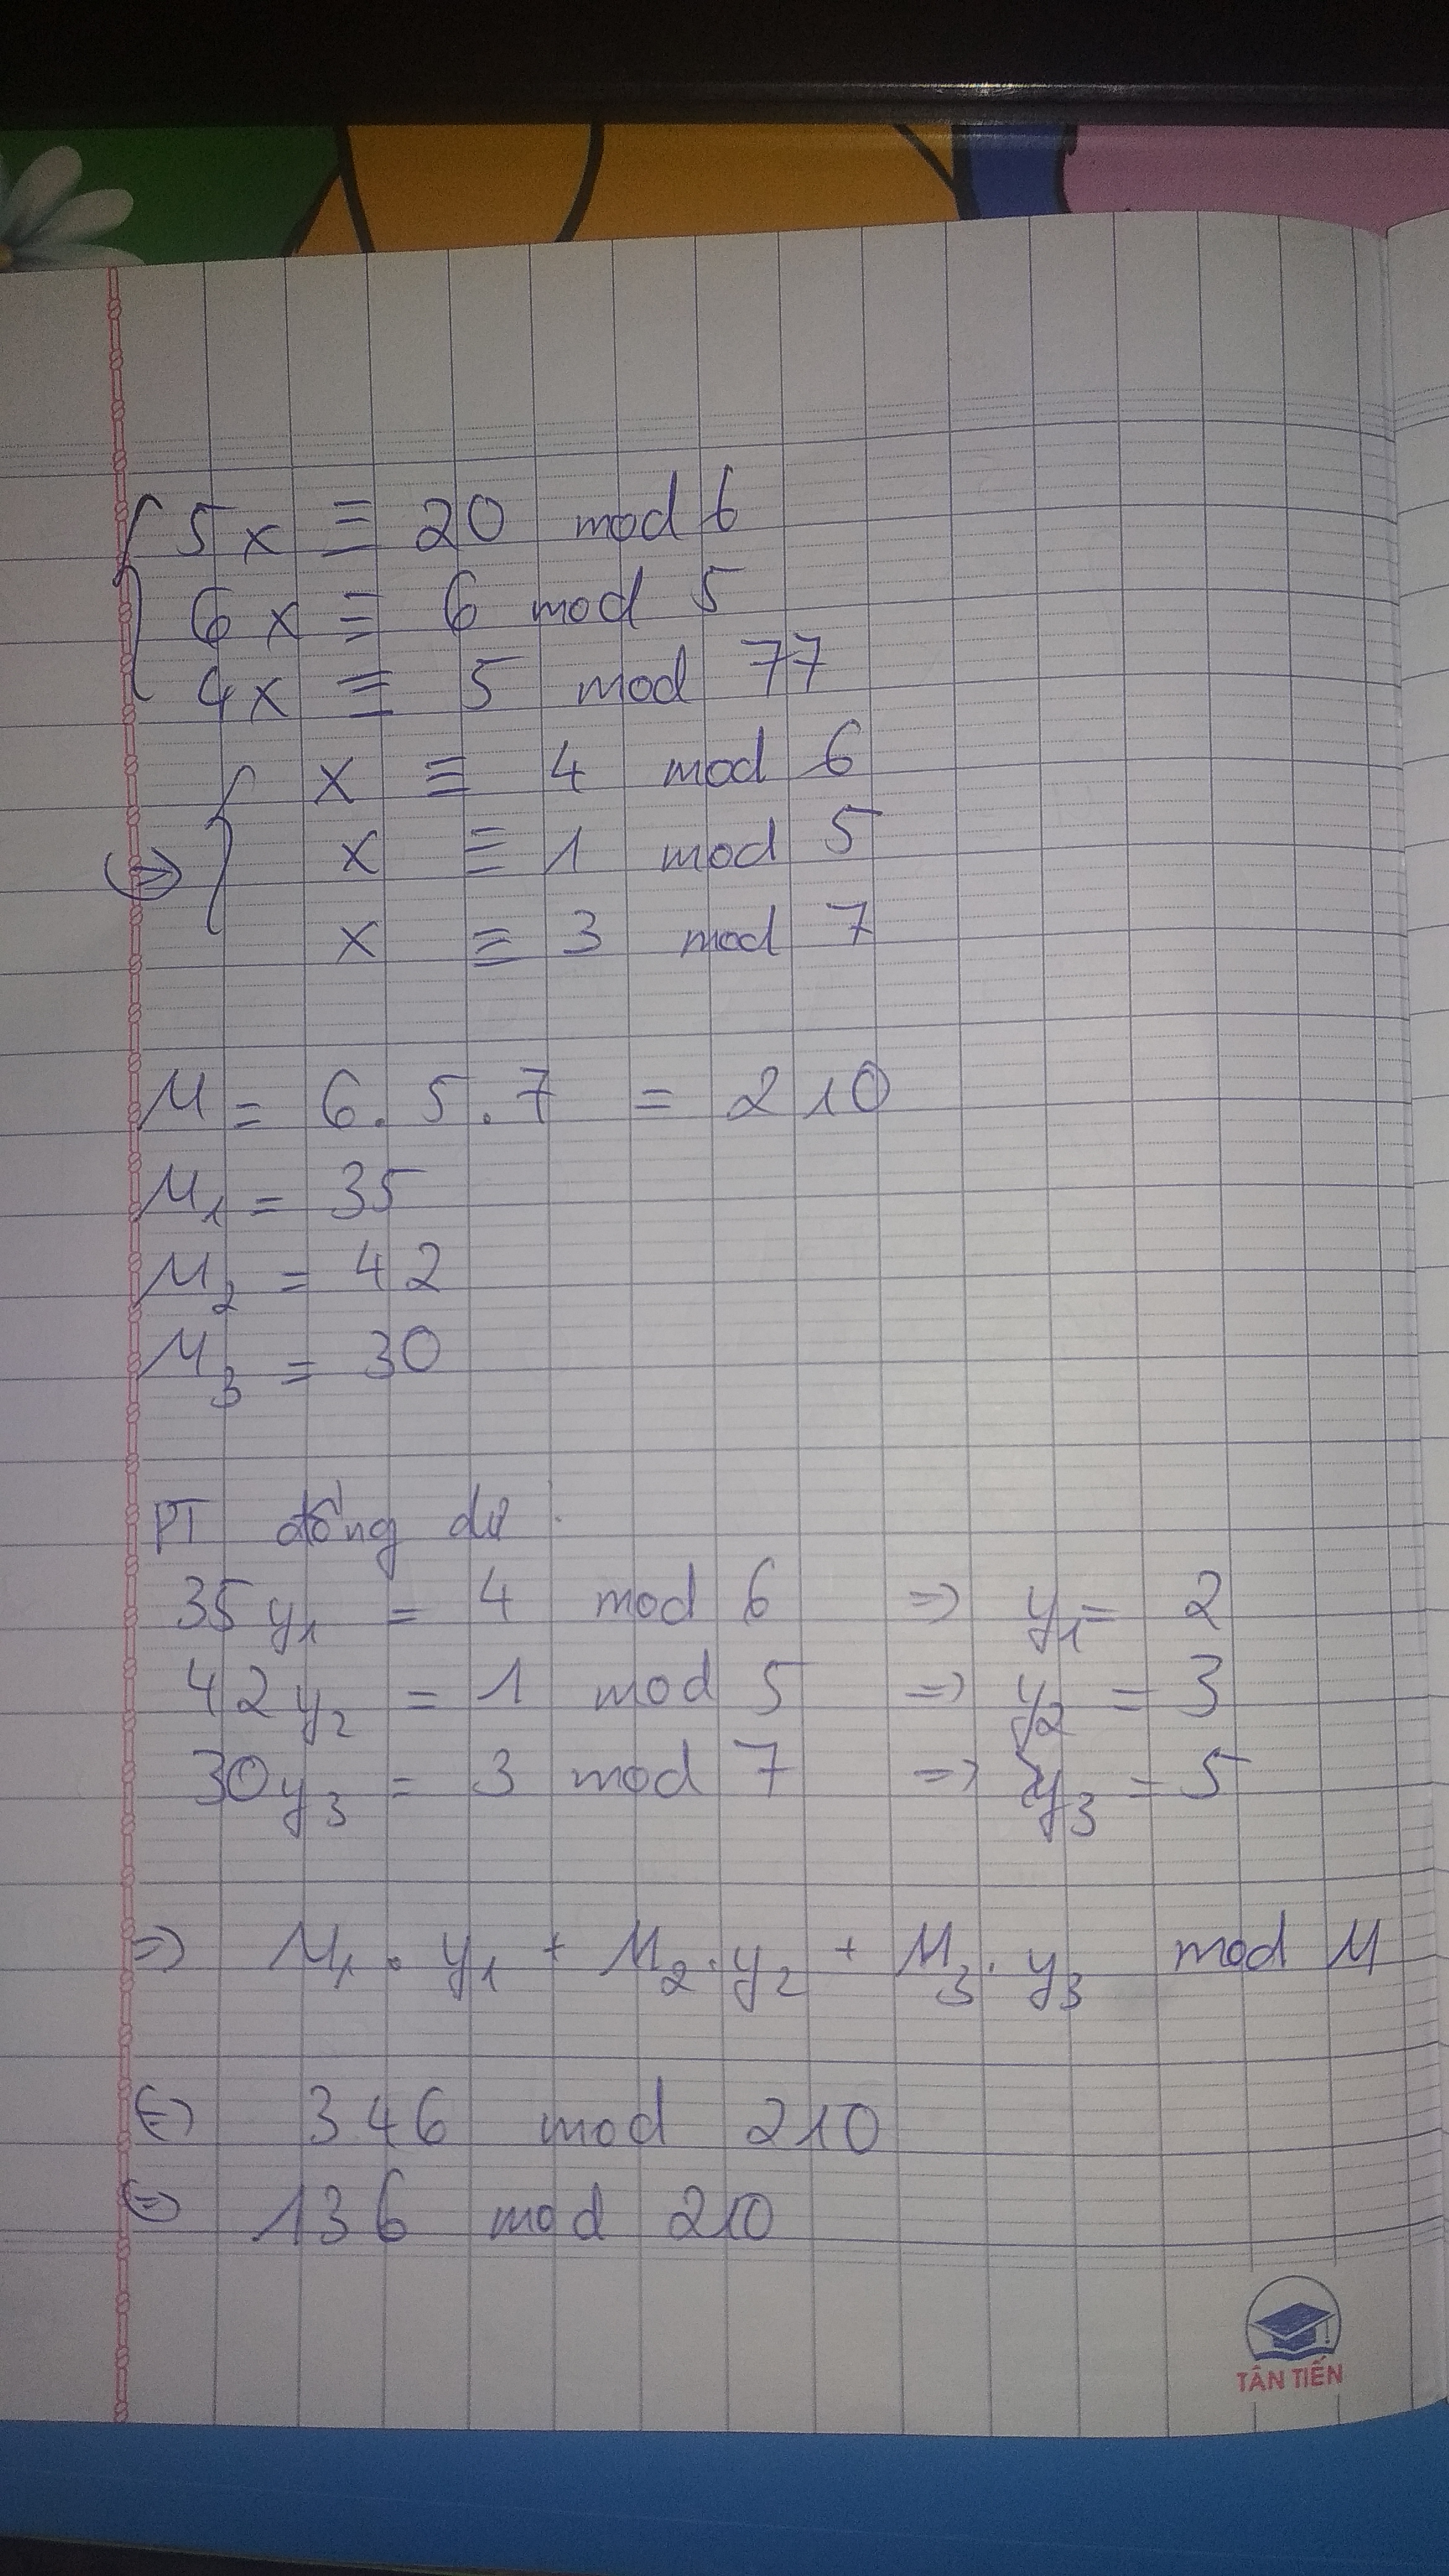 5x ≡ 20 mod 6
6x ≡ 6 mod 5
4x ≡ 5 mod 77
x ≡ 4 mod 6
⇔ x ≡ 1 mod 5
x ≡ 3 mod 7
M = 6.5.7 = 210
M1 = 35
M2 = 42
M3 = 30
PT đồng dư:
35y1 = 4 mod 6 => y1 = 2
42y2 = 1 mod 5 => y2 = 3
30y3 = 3 mod 7 => y3 = 5
=> M1.y1 + M2.y2 + M3.y3 mod M
⇔ 346 mod 210
⇔ 136 mod 210
TÂN TIẾN